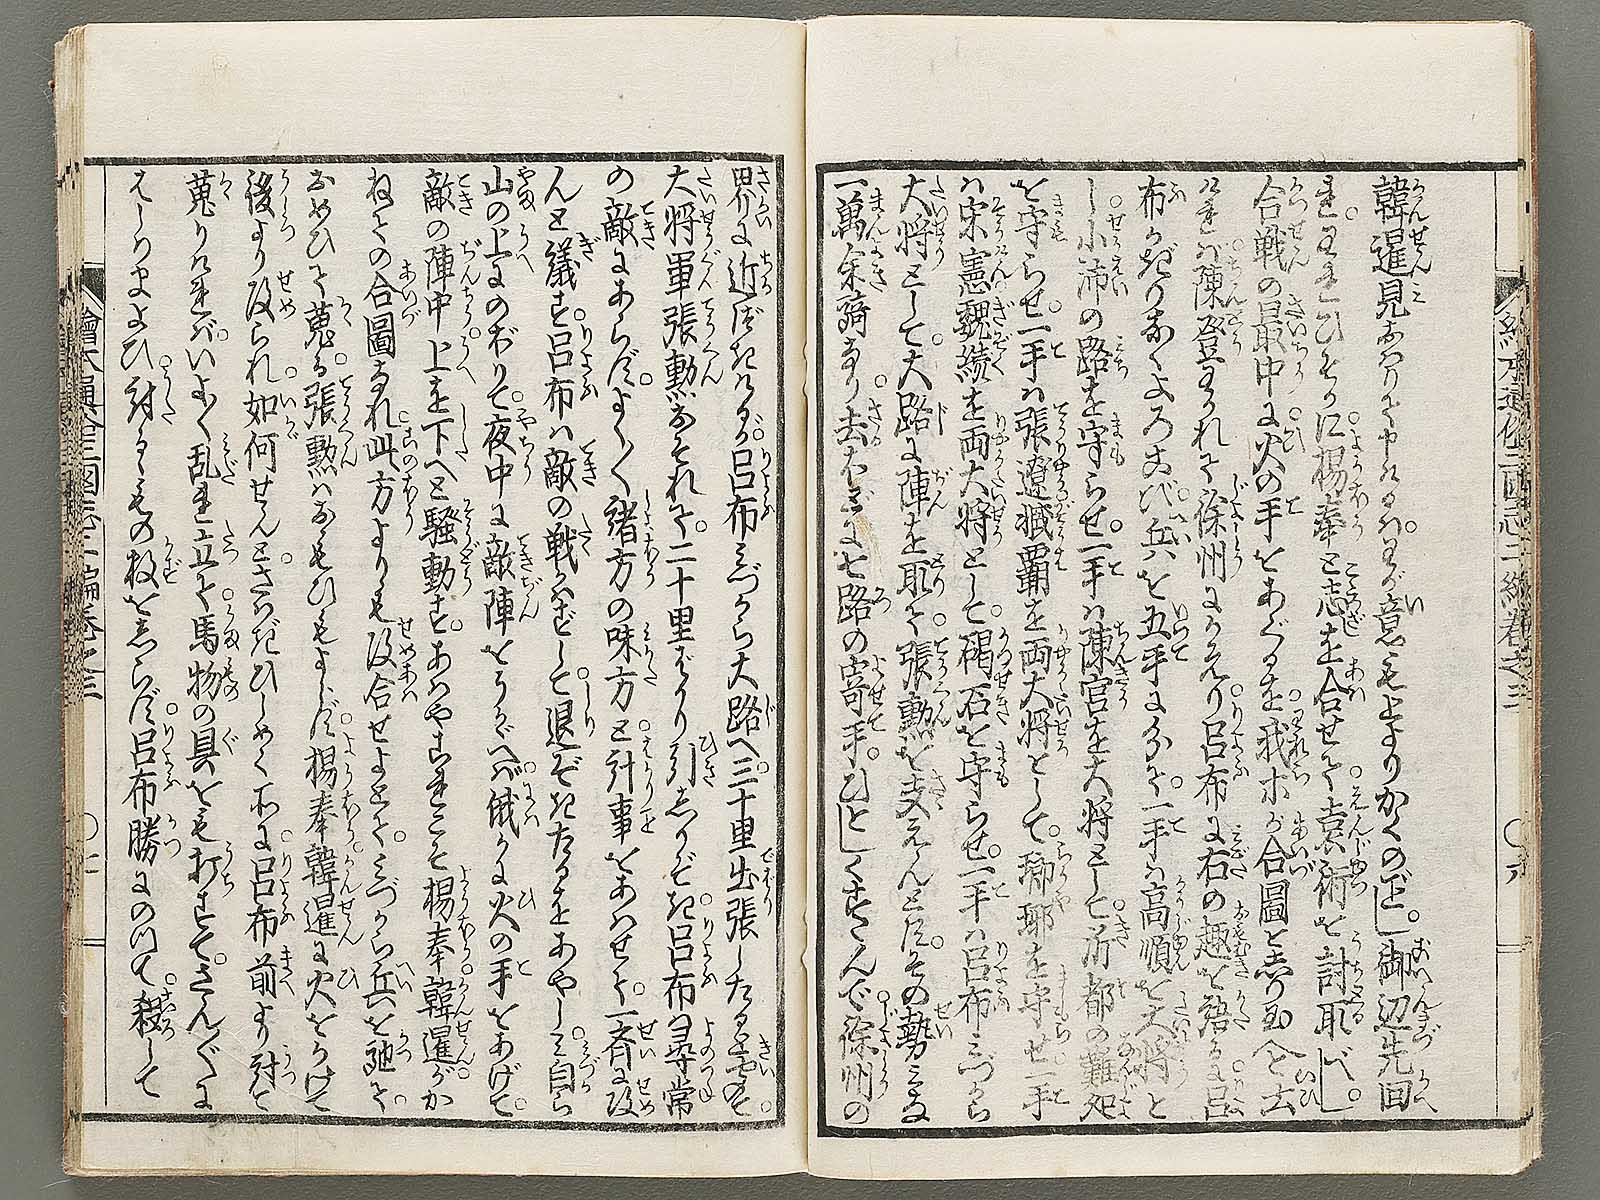 韓暹見おハりて申けるハ。わが意も上よりかくのごとし。御辺先回
れ。われひそかに楊奉と志を合せて袁術を討取べし。
合戦の最中に火の手をあぐるを我等が合圖と志り玉へと云
けれバ陳登わかれて徐州にかえり呂布に右の趣を語るに呂
布かぎりなくよろこび。兵を五手に分て。一手ハ高順を大将と
し小沛の路を守らせ。一手ハ陳宮を大将として沂都の難処
を守らせ。一手ハ張遼臧覇を両大将として。瑯琊を守せ一手
ハ宋憲魏続を両大将として。碣石を守らせ。一手ハ呂布みづから
大将として大路に陣を取て。張勲を支えんとす。その勢ミな
一萬余騎なり去ほどに七路の寄手。ひとしくすゝんで徐州の
界に近づきけるが。呂布ミづから大路へ三十里出張したるときゝて。
大将軍張勲おそれて。二十里ばかり引しりぞき呂布ハ尋常
の敵にあらず。よく〳〵諸方の味方と計事をあハせて。一斉に攻
んと議す。呂布ハ敵の戦ハずして退ぞきたるをあやしミ自ら
山の上にのぼりて。夜中に敵陣をうかゞへバ。俄かに火の手をあげて。
敵の陣中上を下へと騒動す。あハやこれこそ楊奉韓暹がか
ねての合圖なれ此方よりも攻合せよとて。ミづから兵を馳て。
おめひて蒐る張勲ハおもひもよらず。楊奉韓暹に火をかけて
後より攻られ。如何せんとさハぎひしめく所に。呂布前より討て
蒐りけれバ。いよ〳〵乱れ立て馬物の具をも打すて。さん〴〵に
なりまよひ討るゝもの数をしらず。呂布勝にのつて。殺して
繪本通俗三國志二編巻之三
〇六